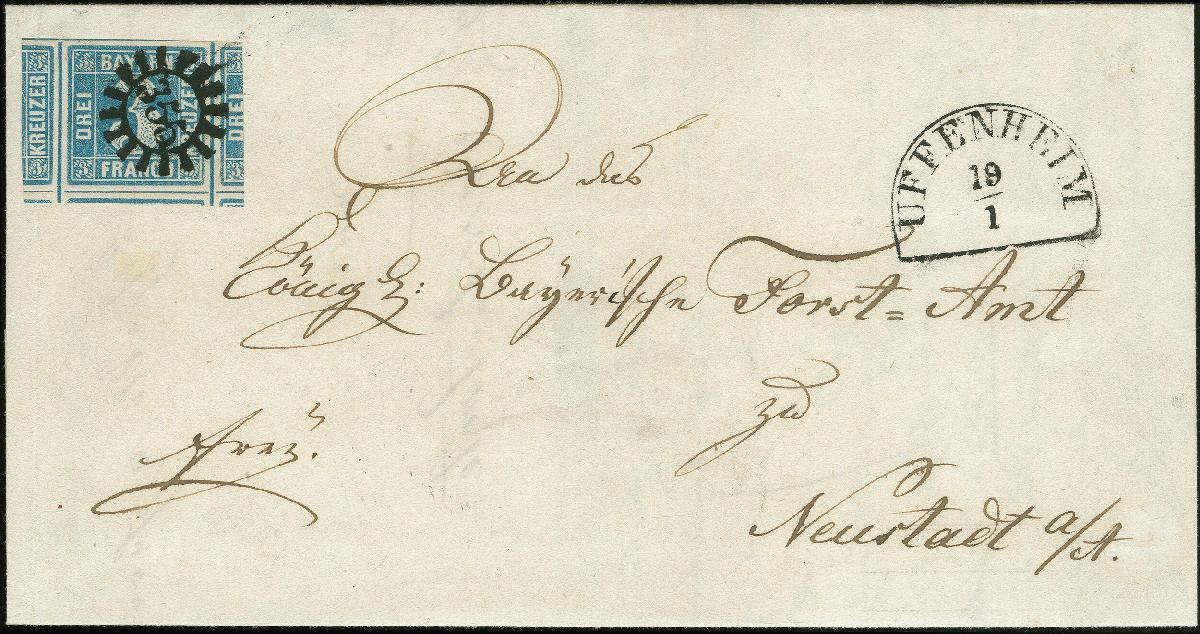 KREUZER
BAYERN
DREI
KREUZER
FRANCO
DREI
3
356
UFFENHEIM
19
1
An das
Königl: Bayerische Forst=Amt
zu
Neustadt a/A.
frei.